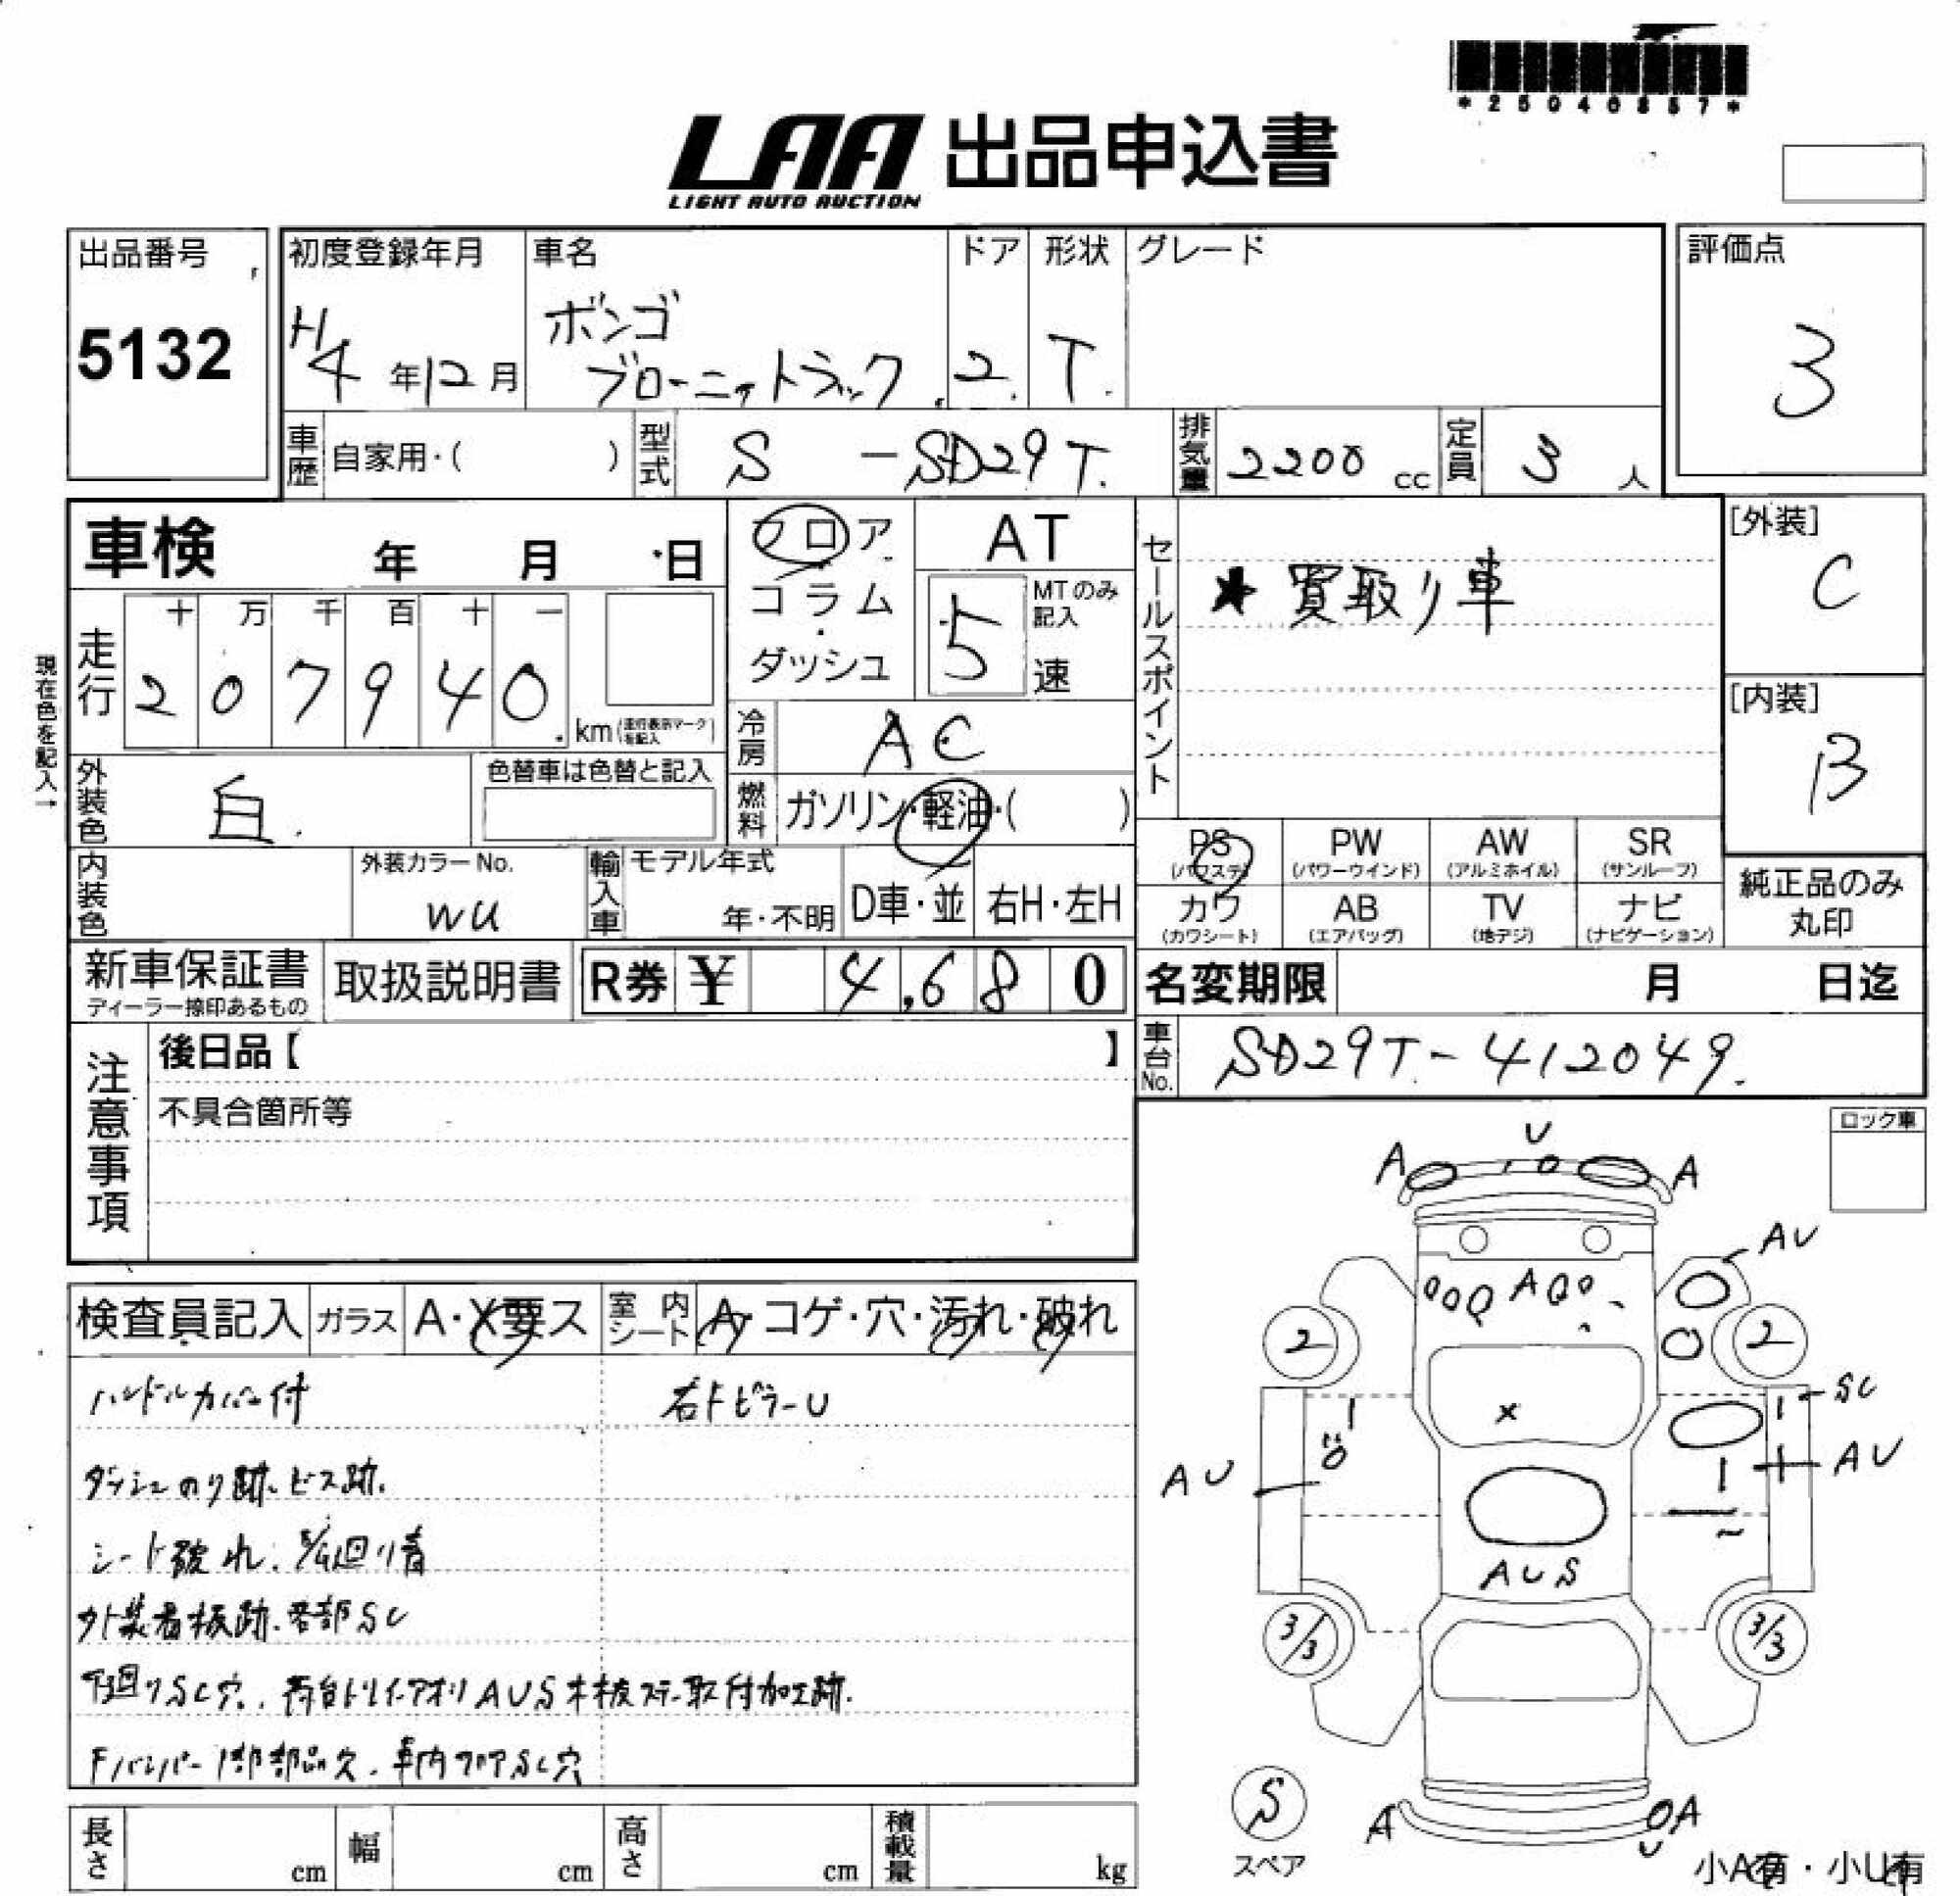 *25040857*
LAA 出品申込書
LIGHT AUTO AUCTION
出品番号
5132
初度登録年月
H4年12月
車名
ボンゴ
ブローニィトラック
ドア
2.
形状
T.
グレード
評価点
3
車歴
自家用・( )
型式
S -SD29T.
排気量
2200 cc
定員
3 人
車検 年 月 日
フロア
コラム
・
ダッシュ
AT
5
MTのみ
記入
速
セールスポイント
★ 買取り車
[外装]
C
[内装]
B
現在色を記入→
走行
十 万 千 百 十 一
2 0 7 9 4 0.
km (走行表示マーク
を記入)
冷房
AC
外装色
白.
色替車は色替と記入
燃料
ガソリン・軽油・( )
PS
(パワステ)
PW
(パワーウインド)
AW
(アルミホイル)
SR
(サンルーフ)
カワ
(カワシート)
AB
(エアバッグ)
TV
(地デジ)
ナビ
(ナビゲーション)
純正品のみ
丸印
内装色
外装カラーNo.
WU
輸入車
モデル年式
年・不明
D車・並
右H・左H
新車保証書
ディーラー捺印あるもの
取扱説明書
R券 ¥ 4,680
名変期限 月 日迄
車台No.
SD29T-412049.
注意事項
後日品【 】
不具合箇所等
ロック車
検査員記入
ガラス
A・X要ス
室内シート
A・コゲ・穴・汚れ・破れ
ハンドルカバー付
右トビラーU
ダッシュのり跡.ビス跡.
シート破れ.
外装看板跡.各部SC
下廻りSC穴. 荷台トリイ・アオリAUS木板ステー取付加工跡.
Fバンパー1部部品欠.車内フロアSC穴
U
A
A
AU
A
2
2
SC
AU
AU
X
AUS
3/3
3/3
S
スペア
A
A
U
小A有・小U有
長さ
cm
幅
cm
高さ
cm
積載量
kg